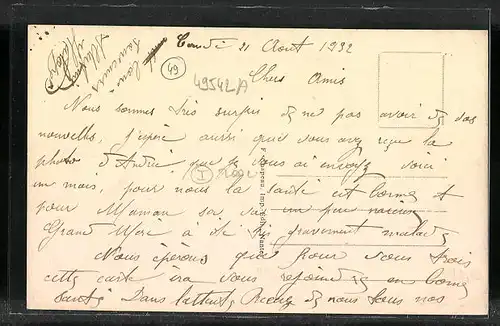 Candé 21 Août 1932
49
49542/A
Chers Amis
Nous sommes très surpris de ne pas avoir de vos
nouvelles, j'espère aussi que vous avez reçue la
photo d'André que je vous ai envoyé voici
un mois, pour nous la santé est bonne et
pour Maman sa va un peu mieux
Grand Mère à été très gravement malade
Nous éspérons que pour vous trois
cette carte ira vous rejoindre en bonne
santé Dans l'attente Recevez de nous tous nos